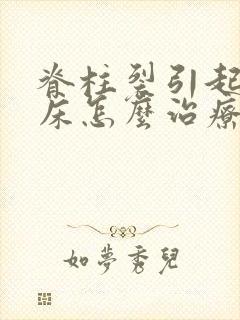 脊柱裂引起
床怎麼治療
如夢秀兒